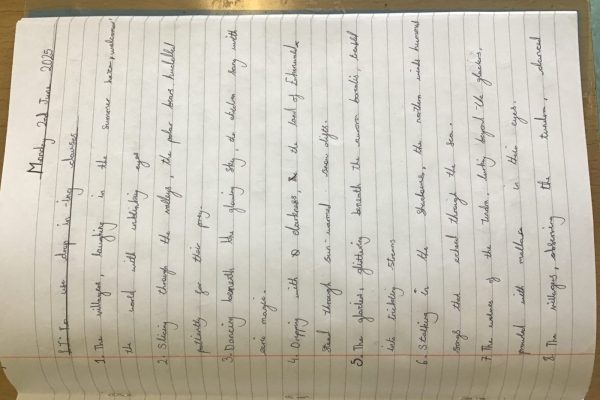 Monday 2nd June 2025
LI: To use drop in -ing clauses
1. The villagers, laughing in the summer haze, welcomed
the world with unblinking eyes
2. Slicing through the valleys, the polar bears huddled
patiently for their prey.
3. Dancing beneath the glowing sky, the sang with
eerie magic.
4. Dripping with darkness, the land of
through sun-warmed snow
5. The glacier, glittering beneath the aurora borealis,
into trickling streams
6. Stalking in the shadows, the northern winds hummed
songs that echoed through the sea.
7. The wolves of the tundra, lurking beyond the glaciers,
prowled with malice in their eyes.
8. The villagers, observing the tundra, danced